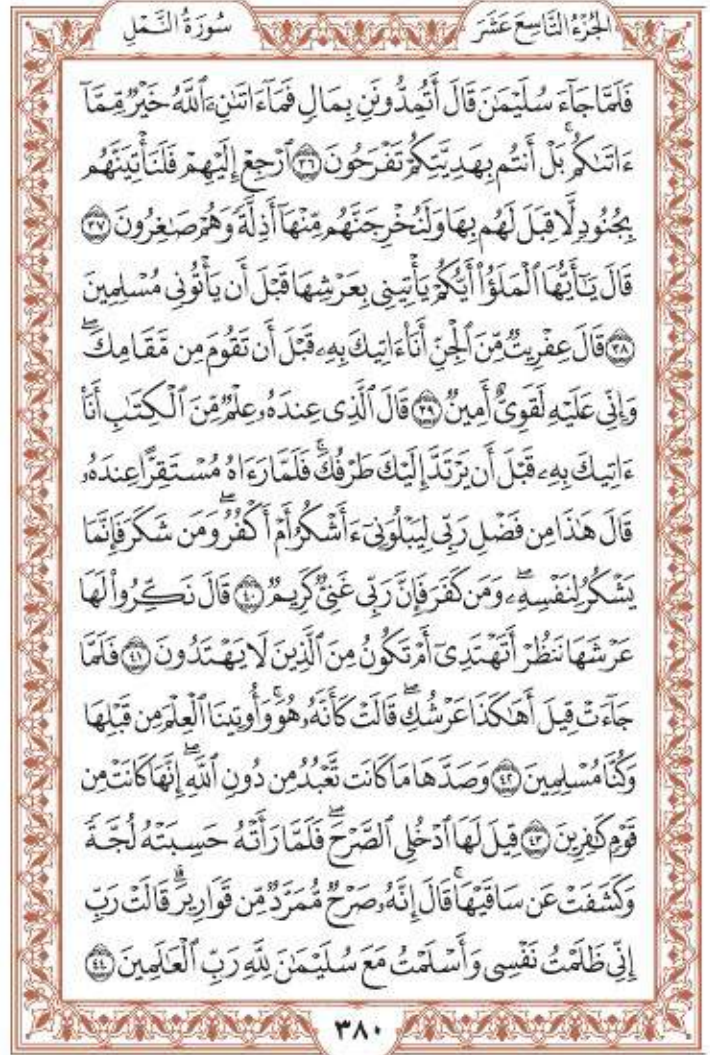 الجُزْءُ التَّاسِعَ عَشَرَ سُورَةُ النَّمْلِ
فَلَمَّا جَآءَ سُلَيْمَٰنَ قَالَ أَتُمِدُّونَنِ بِمَالٍ فَمَآ ءَاتَىٰنِۦَ ٱللَّهُ خَيْرٌ مِّمَّآ
ءَاتَىٰكُمۚ بَلْ أَنتُم بِهَدِيَّتِكُمْ تَفْرَحُونَ ٣٦ ٱرْجِعْ إِلَيْهِمْ فَلَنَأْتِيَنَّهُم
بِجُنُودٍ لَّا قِبَلَ لَهُم بِهَا وَلَنُخْرِجَنَّهُم مِّنْهَآ أَذِلَّةً وَهُمْ صَٰغِرُونَ ٣٧
قَالَ يَٰٓأَيُّهَا ٱلْمَلَؤُا۟ أَيُّكُمْ يَأْتِينِى بِعَرْشِهَا قَبْلَ أَن يَأْتُونِى مُسْلِمِينَ
٣٨ قَالَ عِفْرِيتٌ مِّنَ ٱلْجِنِّ أَنَا۠ ءَاتِيكَ بِهِۦ قَبْلَ أَن تَقُومَ مِن مَّقَامِكَۖ
وَإِنِّى عَلَيْهِ لَقَوِىٌّ أَمِينٌ ٣٩ قَالَ ٱلَّذِى عِندَهُۥ عِلْمٌ مِّنَ ٱلْكِتَٰبِ أَنَا۠
ءَاتِيكَ بِهِۦ قَبْلَ أَن يَرْتَدَّ إِلَيْكَ طَرْفُكَۚ فَلَمَّا رَءَاهُ مُسْتَقِرًّا عِندَهُۥ
قَالَ هَٰذَا مِن فَضْلِ رَبِّى لِيَبْلُوَنِىٓ ءَأَشْكُرُ أَمْ أَكْفُرُۖ وَمَن شَكَرَ فَإِنَّمَا
يَشْكُرُ لِنَفْسِهِۦۖ وَمَن كَفَرَ فَإِنَّ رَبِّى غَنِىٌّ كَرِيمٌ ٤٠ قَالَ نَكِّرُوا۟ لَهَا
عَرْشَهَا نَنظُرْ أَتَهْتَدِىٓ أَمْ تَكُونُ مِنَ ٱلَّذِينَ لَا يَهْتَدُونَ ٤١ فَلَمَّا
جَآءَتْ قِيلَ أَهَٰكَذَا عَرْشُكِۖ قَالَتْ كَأَنَّهُۥ هُوَۚ وَأُوتِينَا ٱلْعِلْمَ مِن قَبْلِهَا
وَكُنَّا مُسْلِمِينَ ٤٢ وَصَدَّهَا مَا كَانَت تَّعْبُدُ مِن دُونِ ٱللَّهِۖ إِنَّهَا كَانَتْ مِن
قَوْمٍ كَٰفِرِينَ ٤٣ قِيلَ لَهَا ٱدْخُلِى ٱلصَّرْحَۖ فَلَمَّا رَأَتْهُ حَسِبَتْهُ لُجَّةً
وَكَشَفَتْ عَن سَاقَيْهَاۚ قَالَ إِنَّهُۥ صَرْحٌ مُّمَرَّدٌ مِّن قَوَارِيرَۗ قَالَتْ رَبِّ
إِنِّى ظَلَمْتُ نَفْسِى وَأَسْلَمْتُ مَعَ سُلَيْمَٰنَ لِلَّهِ رَبِّ ٱلْعَٰلَمِينَ ٤٤
٣٨٠